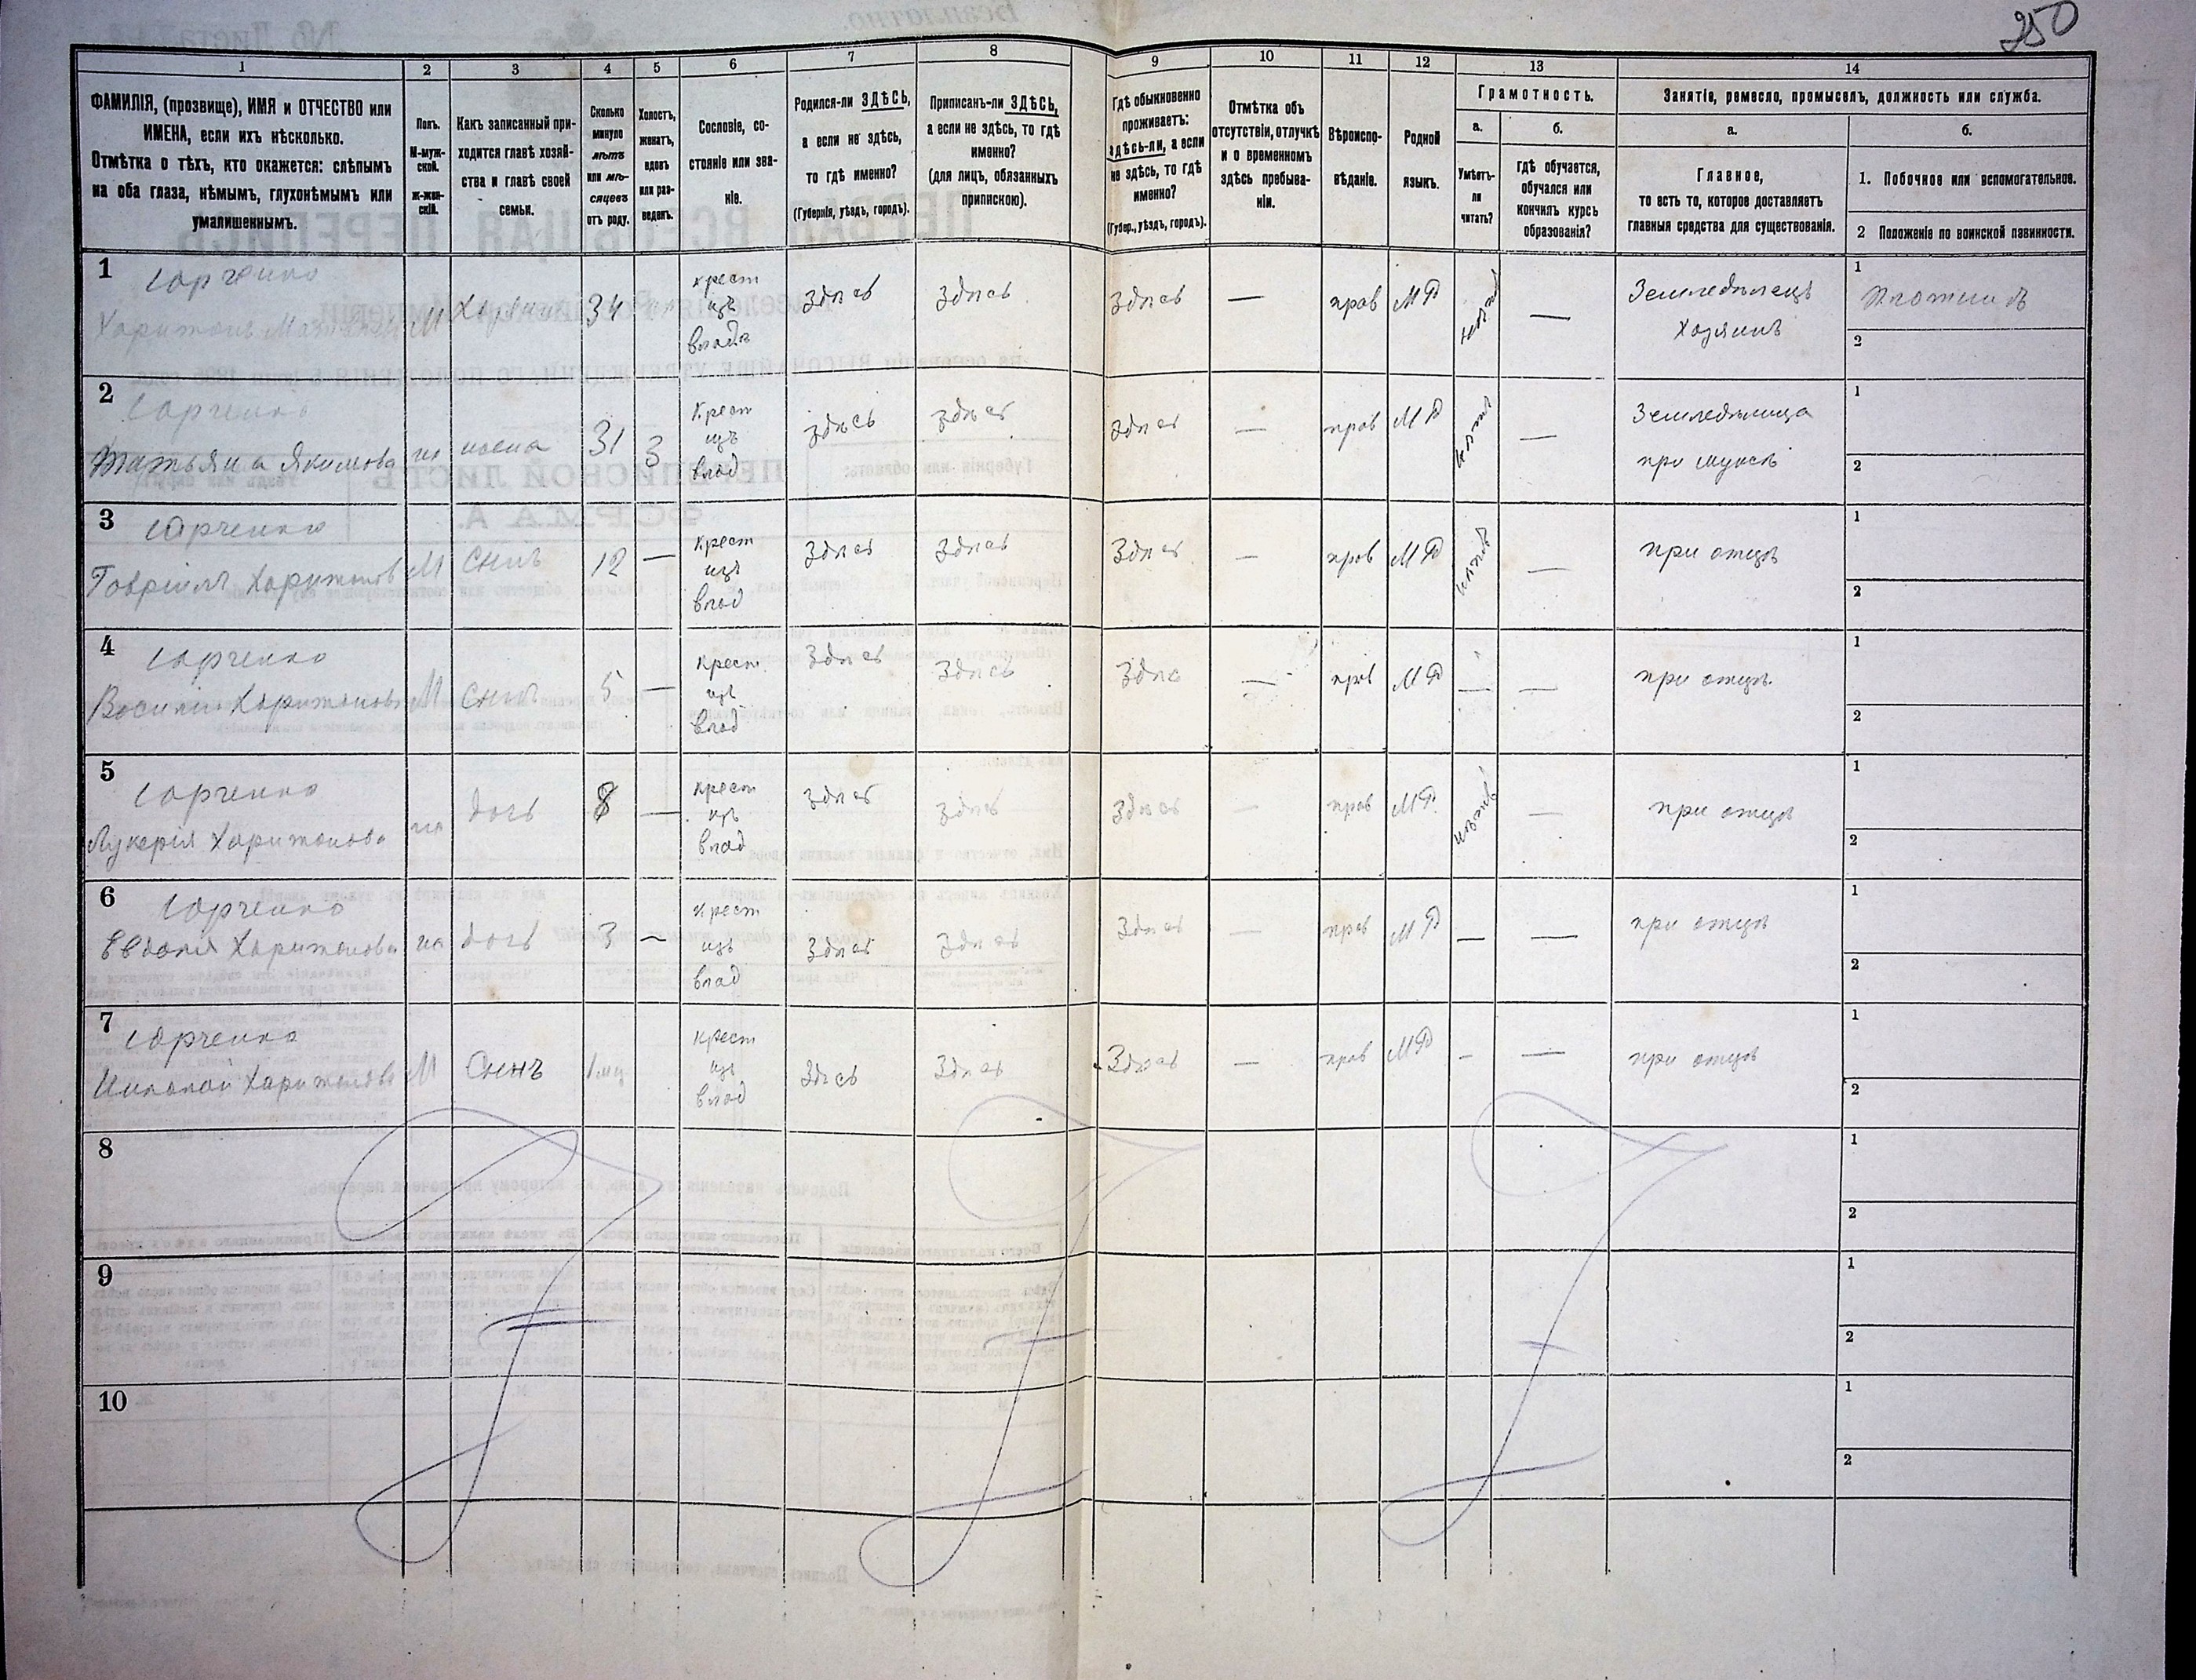 250
1
2
3
4
5
6
7
8
9
10
11
12
13
14
ФАМИЛІЯ, (прозвище), ИМЯ и ОТЧЕСТВО или
ИМЕНА, если ихъ нѣсколько.
Отмѣтка о тѣхъ, кто окажется: слѣпымъ
на оба глаза, нѣмымъ, глухонѣмымъ или
умалишеннымъ.
Полъ.
М-муж-
ской.
ж-жен-
скій.
Какъ записанный при-
ходится главѣ хозяй-
ства и главѣ своей
семьи.
Сколько
минуло
лѣтъ
или мѣ-
сяцевъ
отъ роду.
Холостъ,
женатъ,
вдовъ
или раз-
веденъ.
Сословіе, со-
стояніе или зва-
ніе.
Родился-ли ЗДѢСЬ,
а если не здѣсь,
то гдѣ именно?
(Губернія, уѣздъ, городъ).
Приписанъ-ли ЗДѢСЬ,
а если не здѣсь, то гдѣ
именно?
(для лицъ, обязанныхъ
припискою).
Гдѣ обыкновенно
проживаетъ:
здѣсь-ли, а если
не здѣсь, то гдѣ
именно?
(Губер., уѣздъ, городъ).
Отмѣтка объ
отсутствіи, отлучкѣ
и о временномъ
здѣсь пребыва-
ніи.
Вѣроиспо-
вѣданіе.
Родной
языкъ.
Грамотность.
а.
Умѣетъ-
ли
читать?
б.
Гдѣ обучается,
обучался или
кончилъ курсъ
образованія?
Занятіе, ремесло, промыселъ, должность или служба.
а.
Главное,
то есть то, которое доставляетъ
главныя средства для существованія.
б.
1. Побочное или вспомогательное.
2 Положеніе по воинской павинности.
1
Юрченко
Харитонъ
М
34
крест
изъ
влад
здѣсь
здѣсь
здѣсь
—
прав
МР
—
Земледѣлецъ
Хозяинъ
1
Плотникъ
2
2
Юрченко
Татьяна Якимова
ж
жена
31
З
крест
изъ
влад
здѣсь
здѣсь
здѣсь
—
прав
МР
—
Земледѣлица
при мужѣ
1
2
3
Юрченко
Гавріилъ Харитонов
М
Сынъ
12
—
крест
изъ
влад
здѣсь
здѣсь
здѣсь
—
прав
МР
—
при отцѣ
1
2
4
Юрченко
Василій Харитонов
М
Сынъ
5
—
крест
изъ
влад
здѣсь
здѣсь
здѣсь
—
прав
МР
—
—
при отцѣ
1
2
5
Юрченко
Лукерія Харитонова
ж
дочь
8
—
крест
изъ
влад
здѣсь
здѣсь
здѣсь
—
прав
МР
—
при отцѣ
1
2
6
Юрченко
Евдокія Харитонова
ж
дочь
3
—
крест
изъ
влад
здѣсь
здѣсь
здѣсь
—
прав
МР
—
—
при отцѣ
1
2
7
Юрченко
Николай Харитонов
М
Сынъ
1 мц
крест
изъ
влад
здѣсь
здѣсь
здѣсь
—
прав
МР
—
—
при отцѣ
1
2
8
1
2
9
1
2
10
1
2